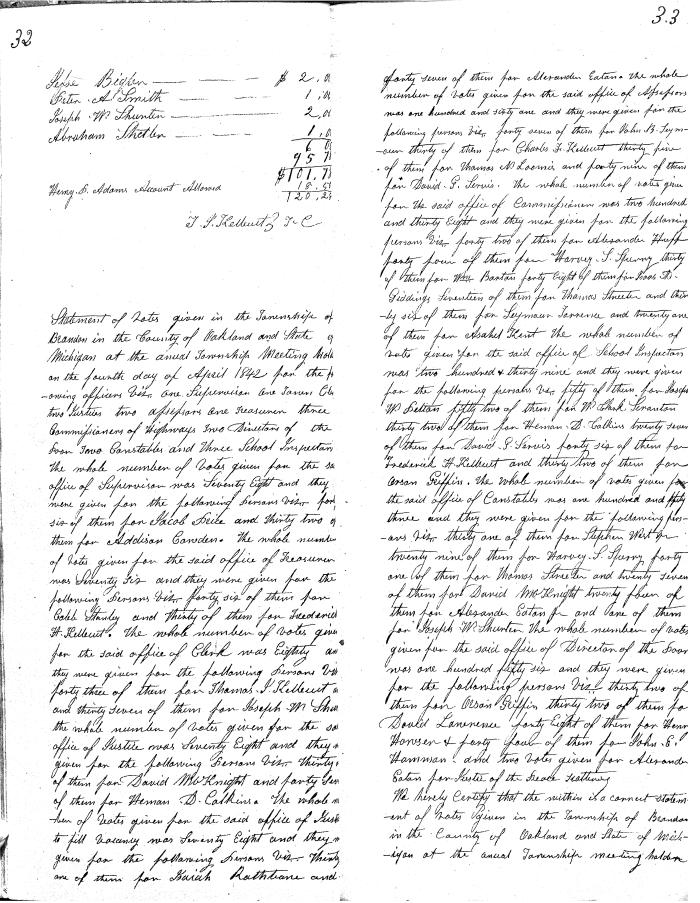 32
Jesse Bigler — — — $ 2.0
Peter A Smith — — — 1.0
Joseph W. Shurter — — — 2.0
Abraham Shetler — — — 1.0
6 0
95 7
$101.7
Henry S. Adams Account Allowed 18.5
120.2
T. J. Kellicutt T C
Statement of Votes given in the Township of
Brandon in the County of Oakland and State of
Michigan at the anual Township Meeting
on the fourth day of April 1842 for the
owing officers Viz. one Supervisor one Town Cl
two Justices two assessors one Treasurer three
Commissioners of Highways two Directors of the
Poor Two Constables and three School Inspectors
The whole number of Votes given for the sa
office of Supervisor was Seventy Eight and they
were given for the following Persons Viz. for
six of them for Jacob and thirty two of
them for Addison The whole numbe
of Votes given for the said office of Treasurer
was Seventy Six and they were given for the
following Persons Viz. forty six of them for
Caleb Stanley and thirty of them for Frederic
H. Kellicutt. The whole number of Votes give
for the said office of Clerk was Eighty an
they were given for the following Persons Viz
forty three of them for Thomas J. Kellicutt a
and thirty seven of them for Joseph W. Shu
the whole number of Votes given for the sa
office of Justice was Seventy Eight and they
given for the following Persons Viz. thirty
of them for David McKnight and forty
of them for Heman D. Calkins. The whole n
ber of Votes given for the said office of Just
to fill Vacancy was Seventy Eight and they
given for the following Persons Viz. Thirty
one of them for Isaiah Rathbone and
33
forty seven of them for Alexander Eaton. The whole
number of Votes given for the said office of Assessors
was one hundred and sixty one and they were given for the
following persons Viz. forty seven of them for John B. Seym-
our thirty of them for Charles F. Kellicutt thirty five
of them for Thomas N. Loomis and forty nine of them
for David P. Servis. The whole number of votes give
for the said office of Commissioner was two hundred
and thirty Eight and they were given for the following
persons Viz. forty two of them for Alexander Huff
forty four of them for Harvey S. Sperry thirty
of them for Wm Barton forty Eight of them for
Giddings Seventeen of them for Thomas Streeter and thir-
ty six of them for Seymour Torrence and twenty one
of them for Asahel Kent The whole number of
Votes given for the said office of School Inspector
was two hundred & thirty nine and they were given
for the following persons Viz. fifty of them for Joseph
W. fifty two of them for W. Clark Scranton
thirty two of them for Heman D. Calkins twenty seven
of them for David P. Servis forty six of them for
Frederick H. Kellicutt and thirty two of them for
Orsan Griffin. The whole number of votes given for
the said office of Constable was one hundred and fifty
three and they were given for the following per-
sons Viz. thirty one of them for Stephen West Jr
twenty nine of them for Harvey S. Sperry forty
one of them for Thomas Streeter and twenty seven
of them for David McKnight twenty four of
them for Alexander Eaton Jr and one of them
for Joseph W. Shurter The whole number of Votes
given for the said office of Director of the Poor
was one hundred fifty six and they were given
for the following persons Viz. thirty two of
them for Orsan Griffin thirty two of them fo
David Lawrence forty Eight of them for Henr
& forty four of them for John E.
Hamman. and two Votes given for Alexander
Eaton for Justice of the Peace
We hereby Certify that the within is a correct statem-
ent of Votes given in the Township of Brandon
in the County of Oakland and State of Mich-
igan at the anual Township meeting holden